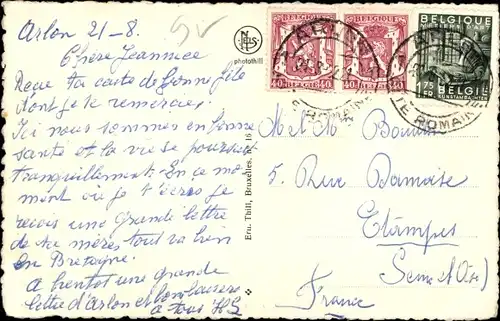 Arlon 21-8.
Chère Jeannee
Reçue ta carte de Bonne fête
dont je te remercies.
Ici nous sommes en bonne
santé et la vie se poursuit
tranquillement. En ce mo-
ment où je t'écris je
reçois une Grande lettre
de ta mères tout va bien
en Bretagne.
a bientot une grande
lettre d'Arlon et bons baisers
a tous
NELS
photothill
Ern. Thill, Bruxelles. nº 16
BELGIQUE
40c 40c
40c 40c
BELGIQUE
1.75 FR
ARLON
ROMAINE
ARLON
ROMAINE
M et Mme
5. Rue Damoise
Etampes
Seine et Oise)
France